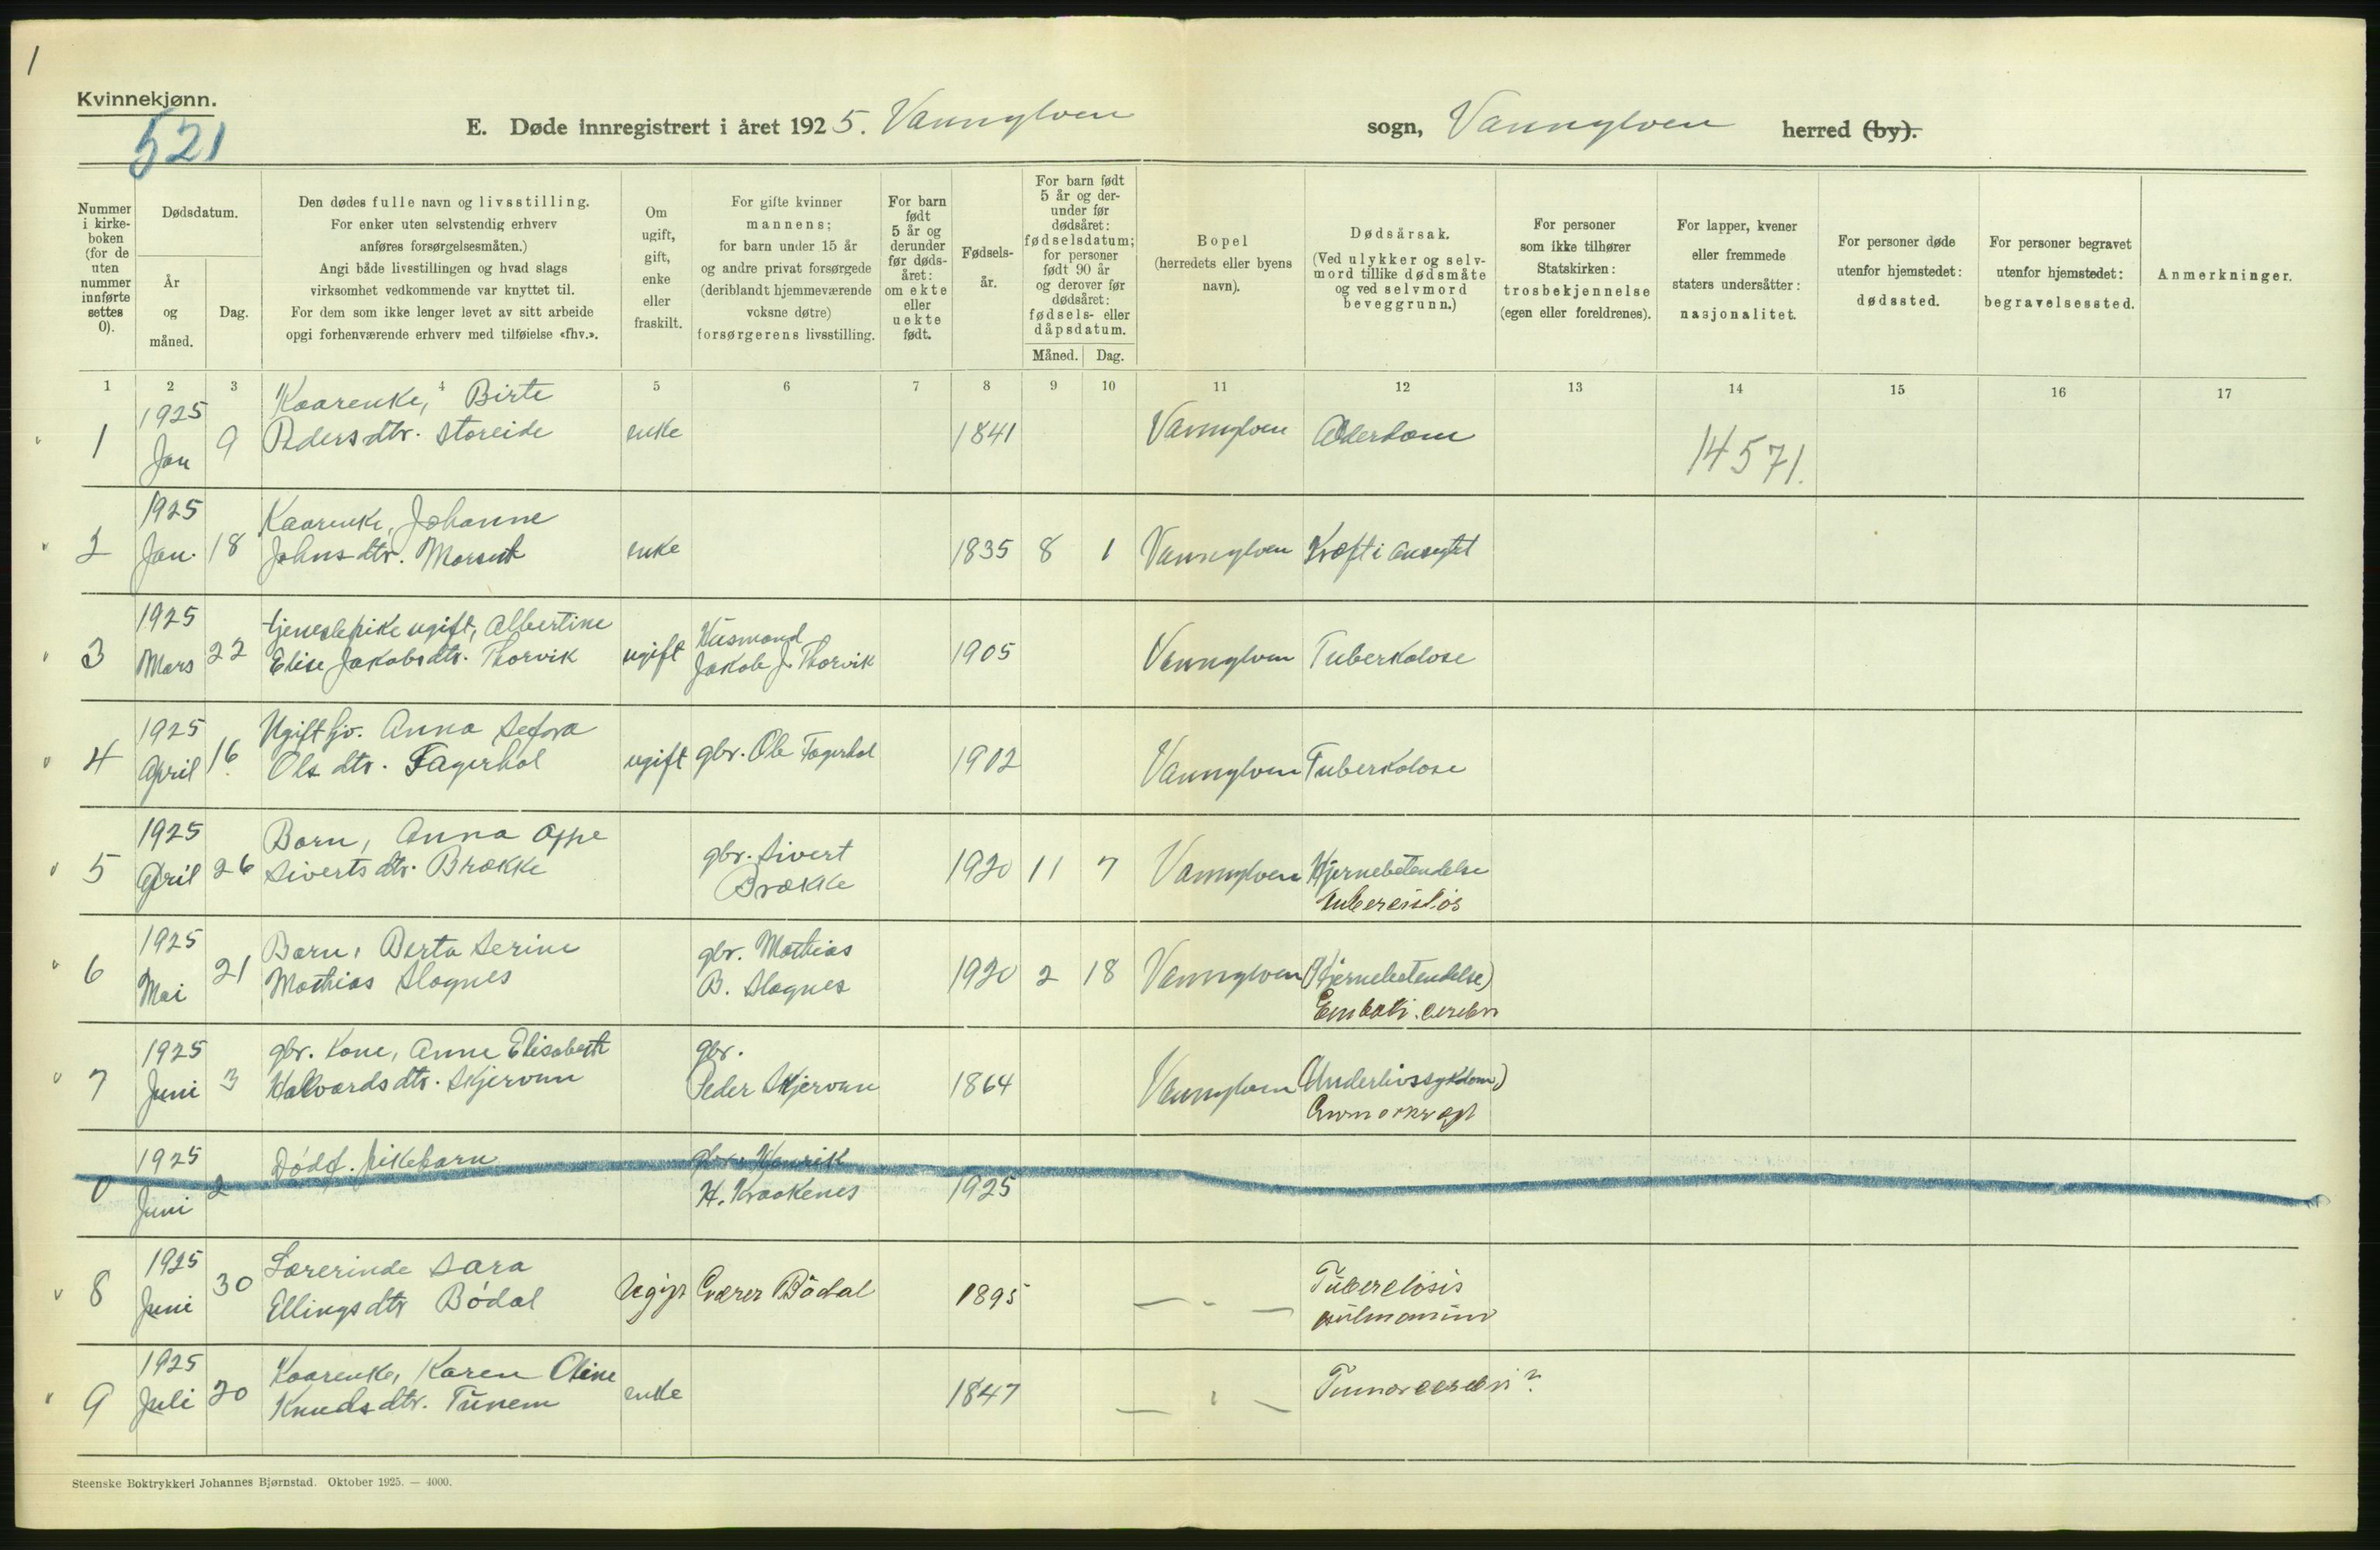 1
Kvinnekjønn.
521
E. Døde innregistrert i året 1925. Vannylven sogn, Vannylven herred (by).
Nummer i kirke-boken (for de uten nummer innførte settes 0).
Dødsdatum.
År og måned.
Dag.
Den dødes fulle navn og livsstilling.
For enker uten selvstendig erhverv
anføres forsørgelsesmåten.)
Angi både livsstillingen og hvad slags
virksomhet vedkommende var knyttet til.
For dem som ikke lenger levet av sitt arbeide
opgi forhenværende erhverv med tilføielse «fhv.».
Om ugift, gift, enke eller fraskilt.
For gifte kvinner
mannens;
for barn under 15 år
og andre privat forsørgede
(deriblandt hjemmeværende
voksne døtre)
forsørgerens livsstilling.
For barn født 5 år og derunder før døds-året: om ekte eller uekte født.
Fødsels-år.
For barn født 5 år og der-under før dødsåret: fødselsdatum; for personer født 90 år og derover før dødsåret: fødsels- eller dåpsdatum.
Måned. Dag.
Bopel
(herredets eller byens
navn).
Dødsårsak.
(Ved ulykker og selv-
mord tillike dødsmåte
og ved selvmord
beveggrunn.)
For personer
som ikke tilhører
Statskirken:
trosbekjennelse
(egen eller foreldrenes).
For lapper, kvener
eller fremmede
staters undersåtter:
nasjonalitet.
For personer døde
utenfor hjemstedet:
dødssted.
For personer begravet
utenfor hjemstedet:
begravelsessted.
Anmerkninger.
1 2 3 4 5 6 7 8 9 10 11 12 13 14 15 16 17
1 1925 Jan 9 Kaarenke, Birte
Pedersdtr. Storeide enke 1841 Vannylven Alderdom 14571.
2 1925 Jan. 18 Kaarenke, Johanne
Johnsdtr. enke 1835 8 1 Vannylven Kræft i ansigtet
3 1925 Mars 22 tjenestepike ugift, Albertine
Elise Jakobsdtr. Thorvik ugift Husmand
Jakob J. Thorvik 1905 Vannylven Tuberkolose
4 1925 April 16 Ugift Anna Sefora
Ols dtr. Fagerhol ugift gbr. Ole Fagerhol 1902 Vannylven Tuberkolose
5 1925 April 26 Barn, Anna
Siverts dtr. Brække gbr. Sivert
Brække 1920 11 7 Vannylven Hjernebetendelse
6 1925 Mai 21 Barn, Berta Serine
Mathias Slagnes gbr. Mathias
B. Slagnes 1920 2 18 Vannylven (Hjernebetendelse)
Emboli. cerebri
7 1925 Juni 3 gbr. Kone, Anne Elisabeth
Halvards dtr. Skjervan gbr.
Peder Skjervan 1864 Vannylven (Underlivssykdom)
0 1925 Juni 2 Dødf. pikebarn gbr. Henrik
H. Kraakenes 1925
8 1925 Juni 30 Lærerinde Sara
Ellings dtr Bødal Ugift Bødal 1895 — " — Tuberclosis
pulmonum
9 1925 Juli 20 Kaarenke, Karen Oline
Knudsdtr. Tunem enke 1847 — " — Tumor cerebri?
Steenske Boktrykkeri Johannes Bjørnstad. Oktober 1925. — 4000.